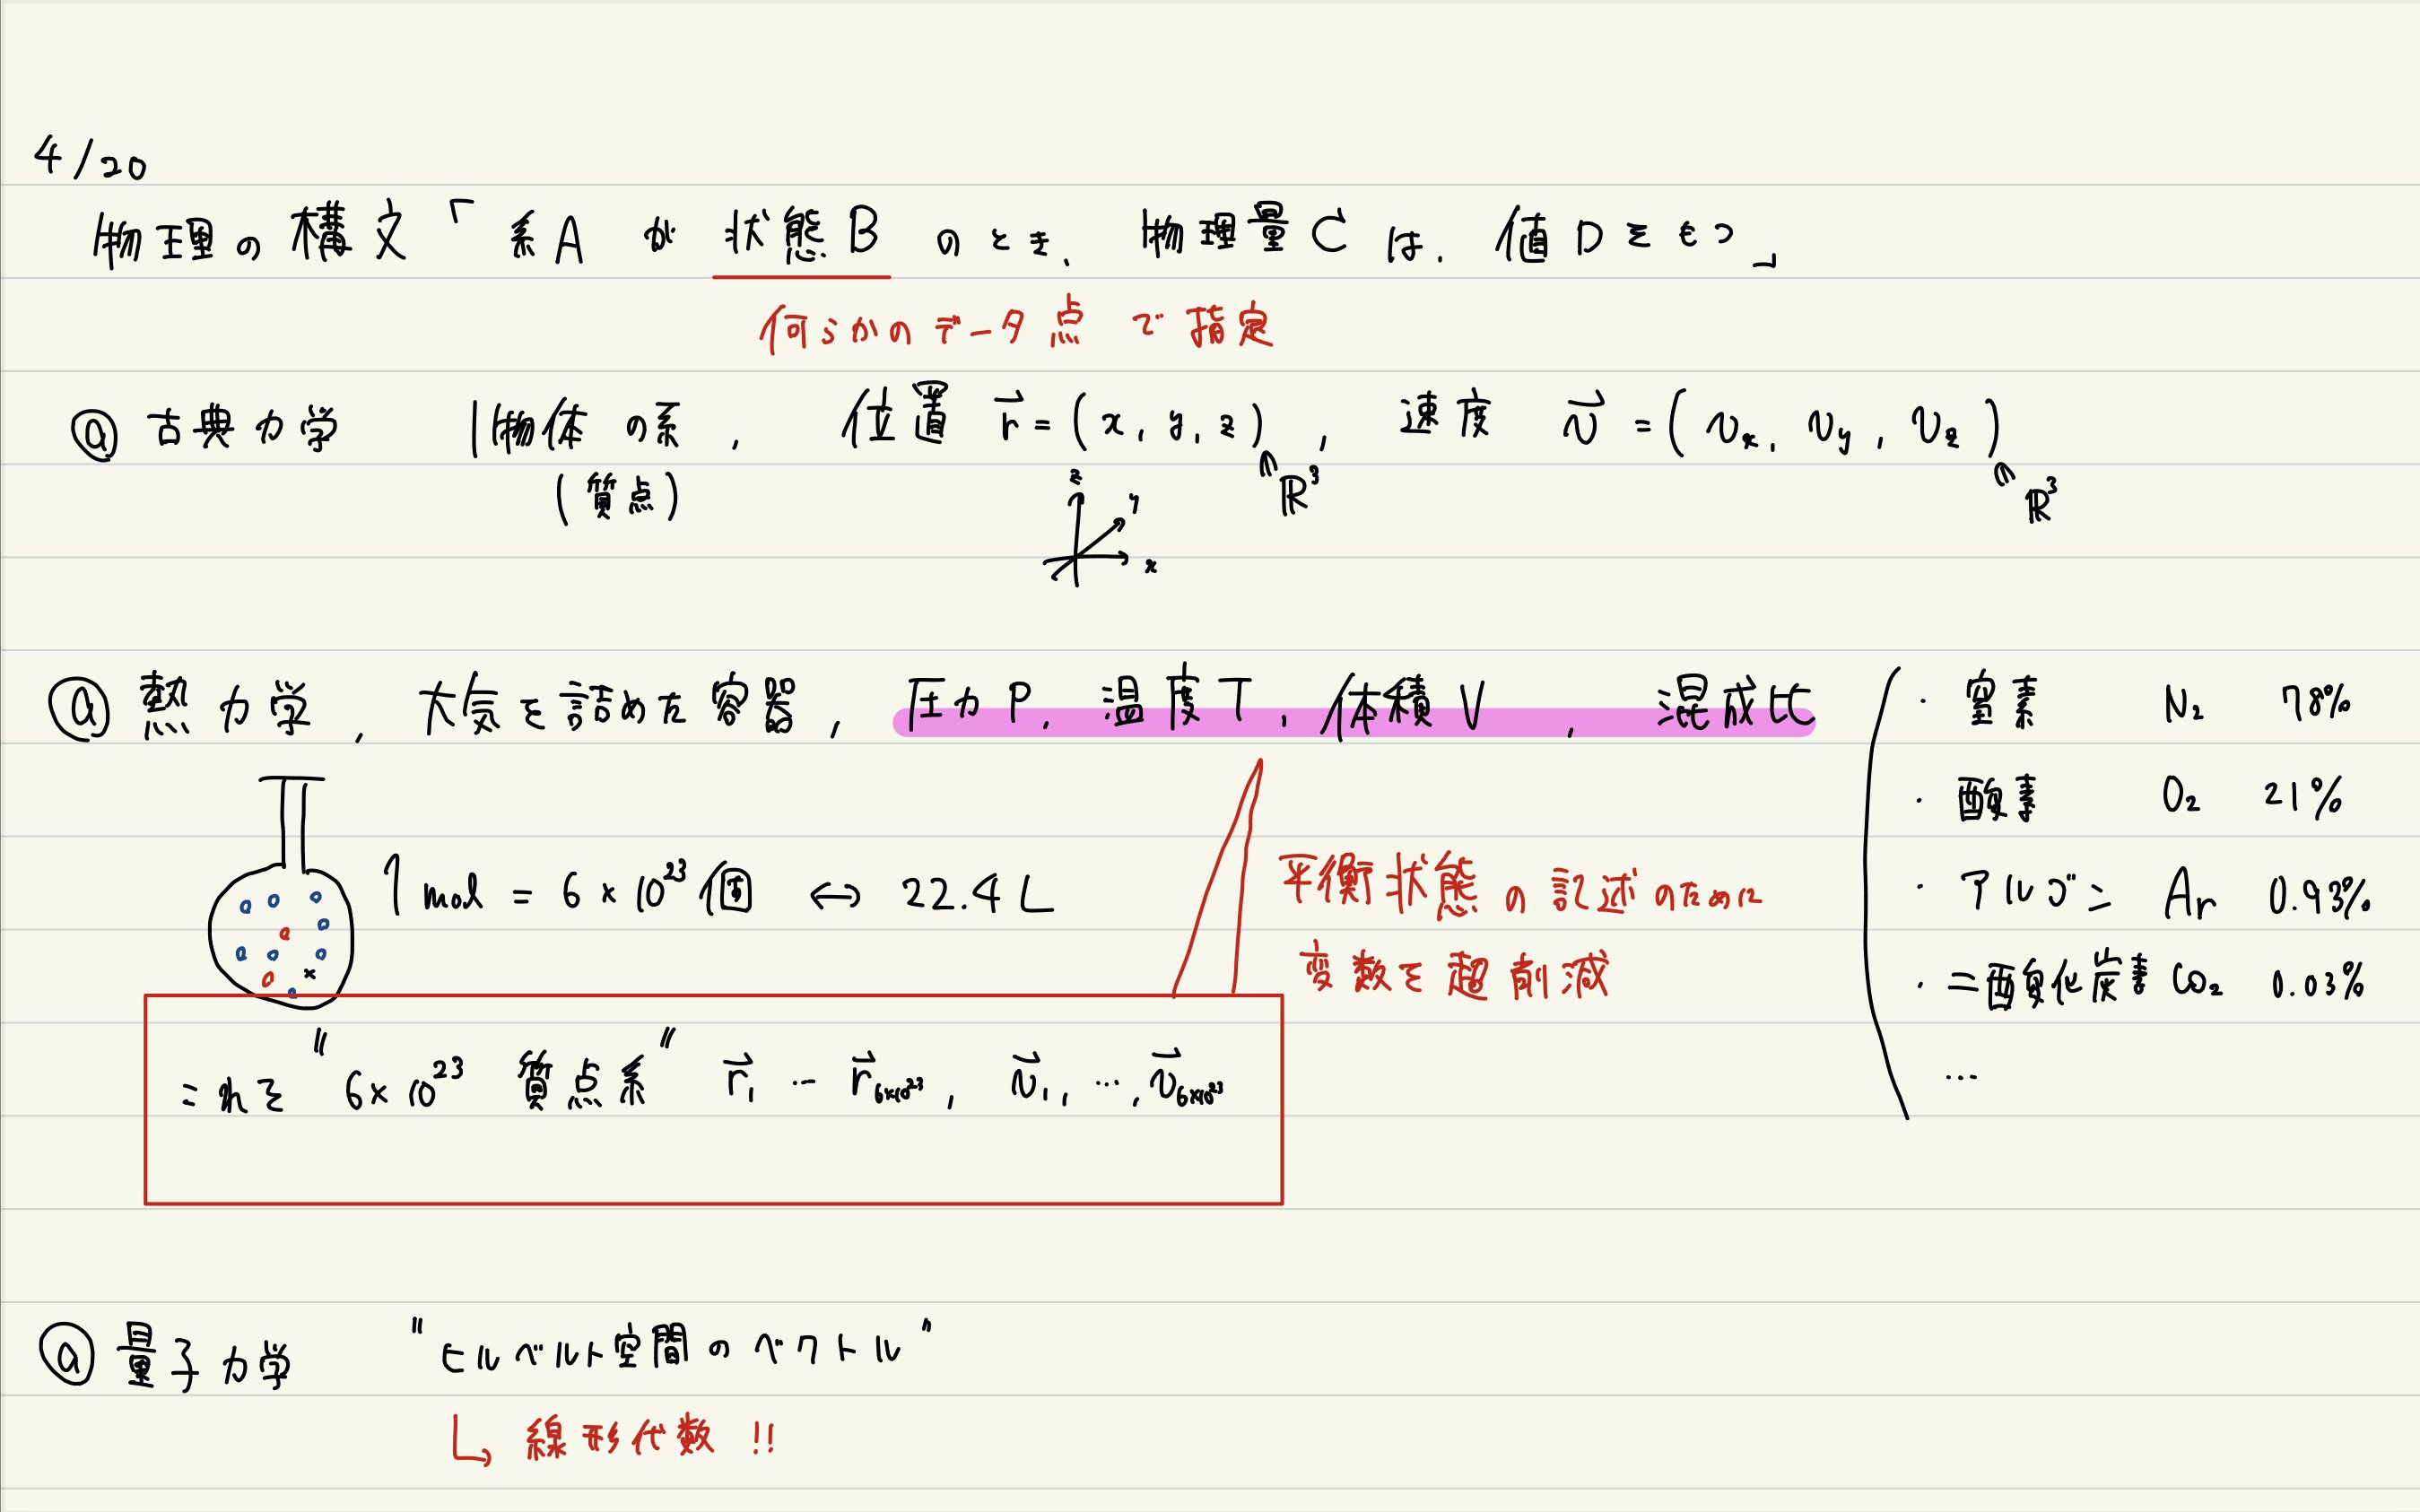 4/20
物理の構文「系Aが状態Bのとき、物理量Cは、値Dをもつ」
何らかのデータ点で指定
@古典力学 1物体の系, 位置 r⃗=(x, y, z), 速度 v⃗=(vx, vy, vz)
(質点) ℝ³ ℝ³
z y
x
@熱力学, 大気を詰めた容器, 圧力P, 温度T, 体積V, 混成比
・窒素 N₂ 78%
・酸素 O₂ 21%
・アルゴン Ar 0.93%
・二酸化炭素 CO₂ 0.03%
…
1mol = 6×10²³個 ↔ 22.4L
平衡状態の記述のために
変数を超削減
これを "6×10²³ 質点系" r⃗₁ … r⃗6×10²³, v⃗₁, …, v⃗6×10²³
@量子力学 "ヒルベルト空間のベクトル"
↳ 線形代数!!